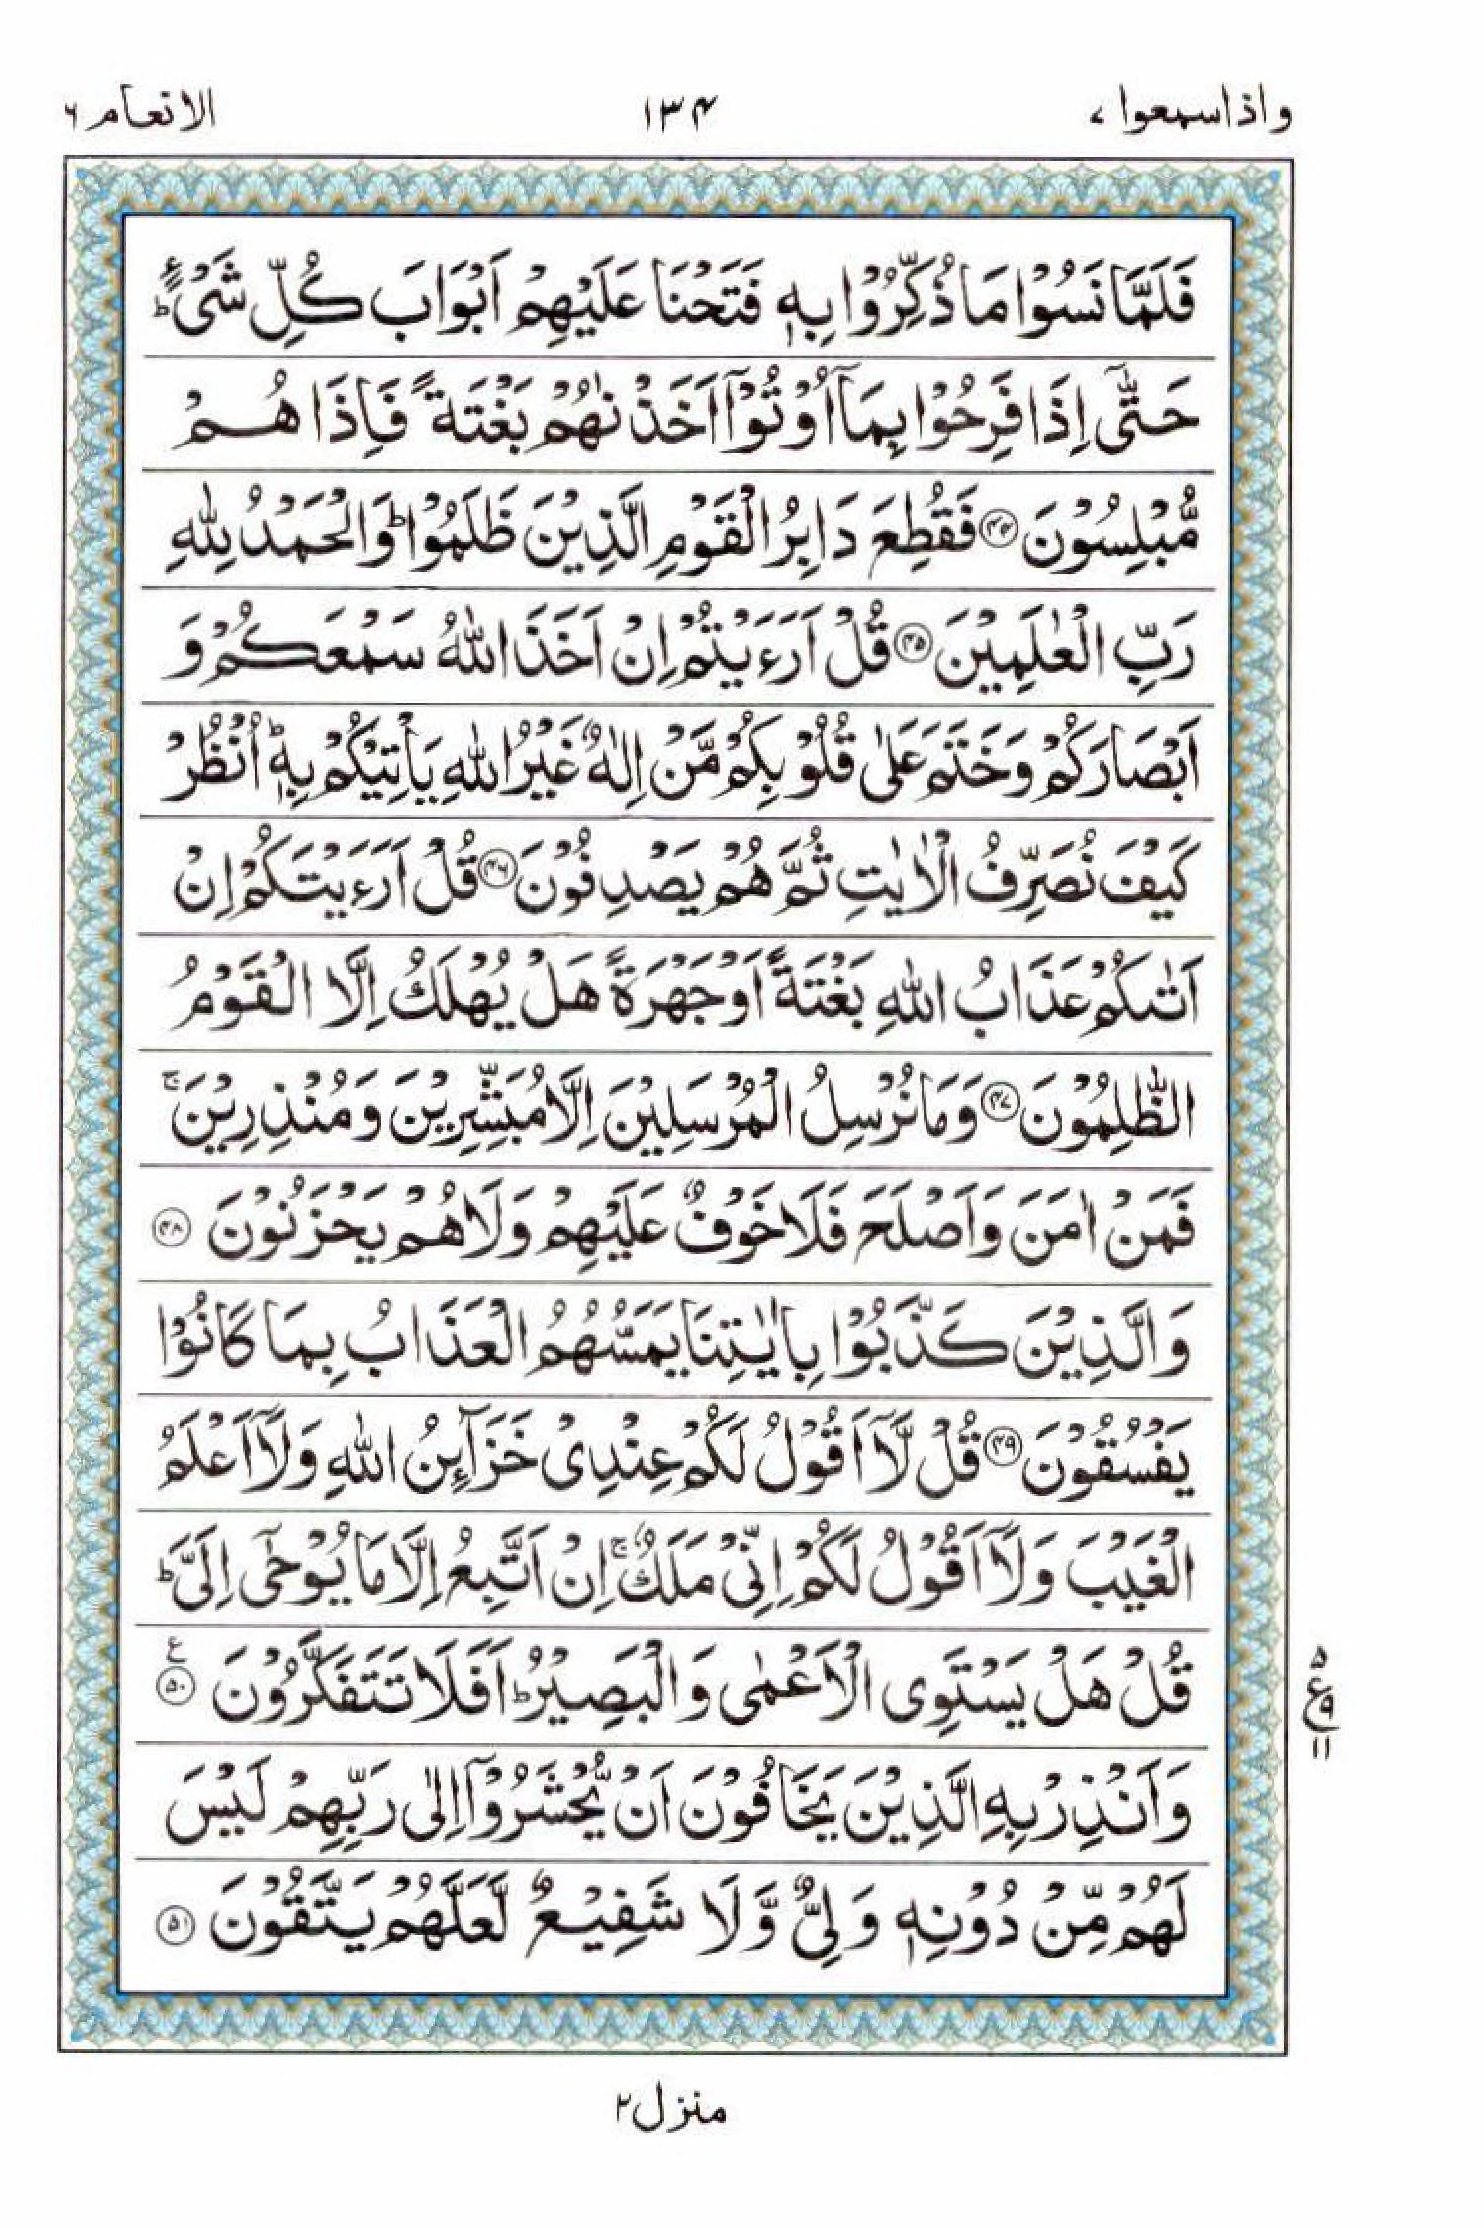 واذا سمعوا ٧
١٣٤
الانعام ٦
فَلَمَّا نَسُوْا مَا ذُكِّرُوْا بِهٖ فَتَحْنَا عَلَيْهِمْ اَبْوَابَ كُلِّ شَيْءٍؕ
حَتّٰۤى اِذَا فَرِحُوْا بِمَاۤ اُوْتُوْۤا اَخَذْنٰهُمْ بَغْتَةً فَاِذَا هُمْ
مُّبْلِسُوْنَ ۝٤٤ فَقُطِعَ دَابِرُ الْقَوْمِ الَّذِيْنَ ظَلَمُوْاؕ وَالْحَمْدُ لِلّٰهِ
رَبِّ الْعٰلَمِيْنَ ۝٤٥ قُلْ اَرَءَيْتُمْ اِنْ اَخَذَ اللّٰهُ سَمْعَكُمْ وَ
اَبْصَارَكُمْ وَخَتَمَ عَلٰى قُلُوْبِكُمْ مَّنْ اِلٰهٌ غَيْرُ اللّٰهِ يَاْتِيْكُمْ بِهٖؕ اُنْظُرْ
كَيْفَ نُصَرِّفُ الْاٰيٰتِ ثُمَّ هُمْ يَصْدِفُوْنَ ۝٤٦ قُلْ اَرَءَيْتَكُمْ اِنْ
اَتٰىكُمْ عَذَابُ اللّٰهِ بَغْتَةً اَوْ جَهْرَةً هَلْ يُهْلَكُ اِلَّا الْقَوْمُ
الظّٰلِمُوْنَ ۝٤٧ وَمَا نُرْسِلُ الْمُرْسَلِيْنَ اِلَّا مُبَشِّرِيْنَ وَمُنْذِرِيْنَۚ
فَمَنْ اٰمَنَ وَاَصْلَحَ فَلَا خَوْفٌ عَلَيْهِمْ وَلَا هُمْ يَحْزَنُوْنَ ۝٤٨
وَالَّذِيْنَ كَذَّبُوْا بِاٰيٰتِنَا يَمَسُّهُمُ الْعَذَابُ بِمَا كَانُوْا
يَفْسُقُوْنَ ۝٤٩ قُلْ لَّاۤ اَقُوْلُ لَكُمْ عِنْدِيْ خَزَآئِنُ اللّٰهِ وَلَاۤ اَعْلَمُ
الْغَيْبَ وَلَاۤ اَقُوْلُ لَكُمْ اِنِّيْ مَلَكٌۚ اِنْ اَتَّبِعُ اِلَّا مَا يُوْحٰۤى اِلَيَّؕ
قُلْ هَلْ يَسْتَوِى الْاَعْمٰى وَالْبَصِيْرُؕ اَفَلَا تَتَفَكَّرُوْنَ ۝٥٠ ع
٥
ع ٩
١١
وَاَنْذِرْ بِهِ الَّذِيْنَ يَخَافُوْنَ اَنْ يُّحْشَرُوْۤا اِلٰى رَبِّهِمْ لَيْسَ
لَهُمْ مِّنْ دُوْنِهٖ وَلِيٌّ وَّلَا شَفِيْعٌ لَّعَلَّهُمْ يَتَّقُوْنَ ۝٥١
منزل ٢